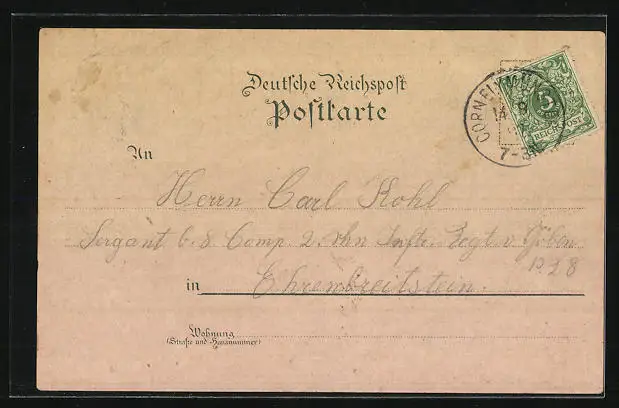 Deutsche Reichspost
Postkarte
CORNELYMÜ
14 8
7-8N
5
REICHSPOST
An
Herrn Carl Kohl
Sergant b. 8 Comp. 2. rhn Inftr. Regt v. Göben
No 28
in Ehrenbreitstein.
Wohnung
(Straße und Hausnummer)